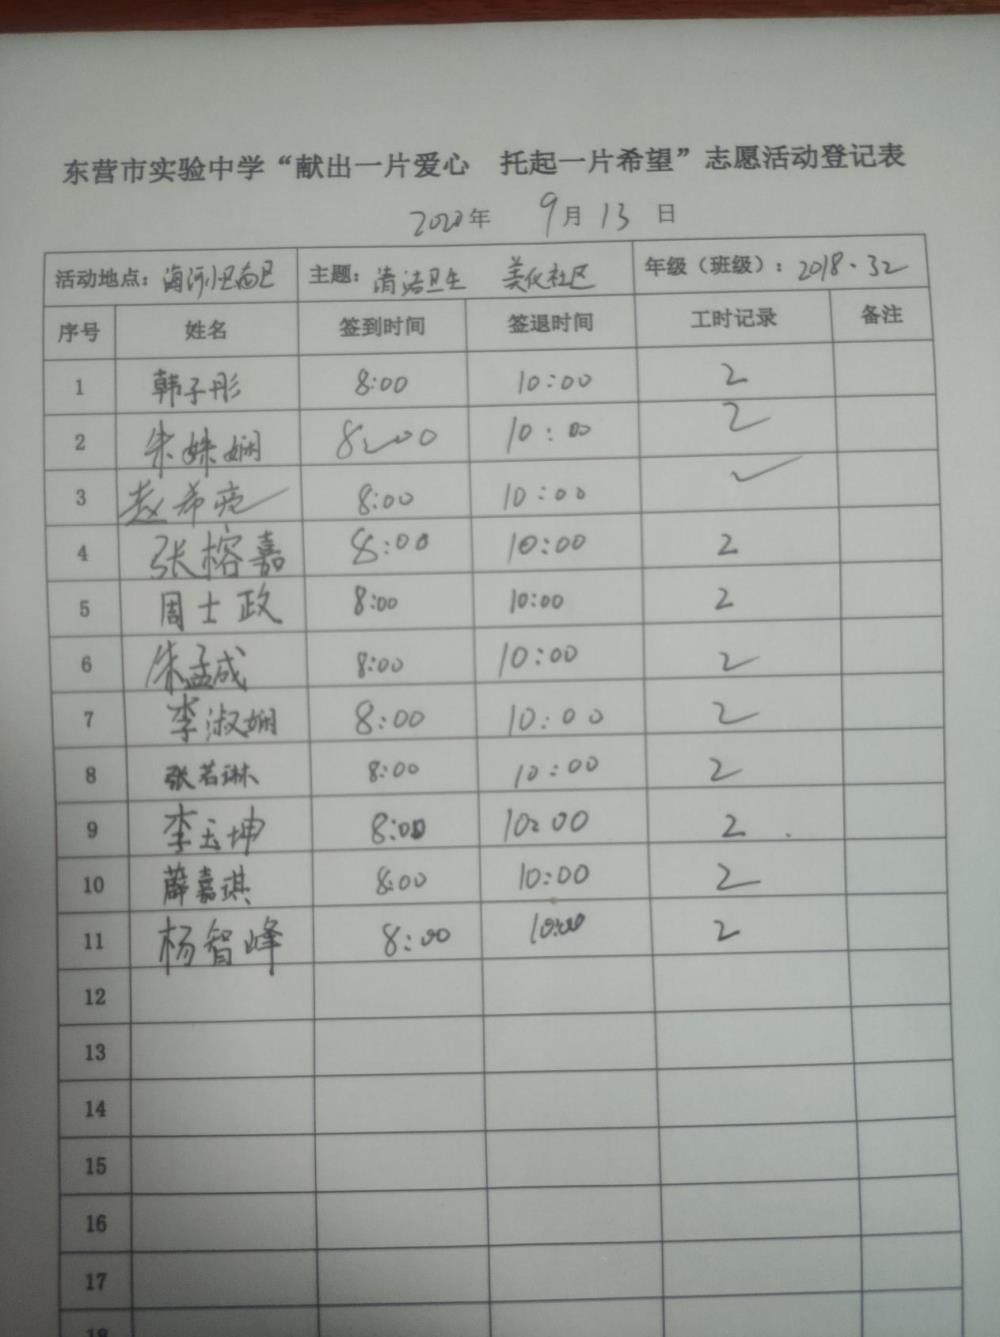 东营市实验中学“献出一片爱心 托起一片希望”志愿活动登记表
2020年 9月13日
活动地点：海河小区南区 主题：清洁卫生 美化社区 年级（班级）：2018.32
序号 姓名 签到时间 签退时间 工时记录 备注
1 韩子彤 8:00 10:00 2
2 朱姝娴 8:00 10:00 2
3 赵希亮 8:00 10:00
4 张榕嘉 8:00 10:00 2
5 周士政 8:00 10:00 2
6 朱孟成 8:00 10:00 2
7 李淑娴 8:00 10:00 2
8 张若琳 8:00 10:00 2
9 李玉坤 8:00 10:00 2
10 薛嘉琪 8:00 10:00 2
11 杨智峰 8:00 10:00 2
12
13
14
15
16
17
18